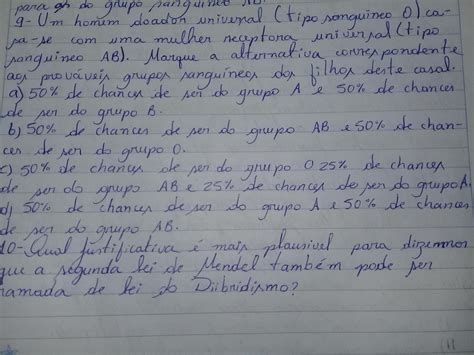 para os do grupo sanguíneo AB.
9- Um homem doador universal (tipo sanguineo O) ca-
sa-se com uma mulher receptora universal (tipo
sanguineo AB). Marque a alternativa correspondente
aos prováveis grupos sanguíneos dos filhos deste casal.
a) 50% de chances de ser do grupo A e 50% de chances
de ser do grupo B.
b) 50% de chances de ser do grupo AB e 50% de chan-
ces de ser do grupo O.
c) 50% de chances de ser do grupo O 25% de chances
de ser do grupo AB e 25% de chances de ser do grupo A.
d) 50% de chances de ser do grupo A e 50% de chances
de ser do grupo AB.
10- Qual justificativa é mais plausivel para dizermos
que a segunda lei de Mendel também pode ser
ramada de lei do Diibridismo?